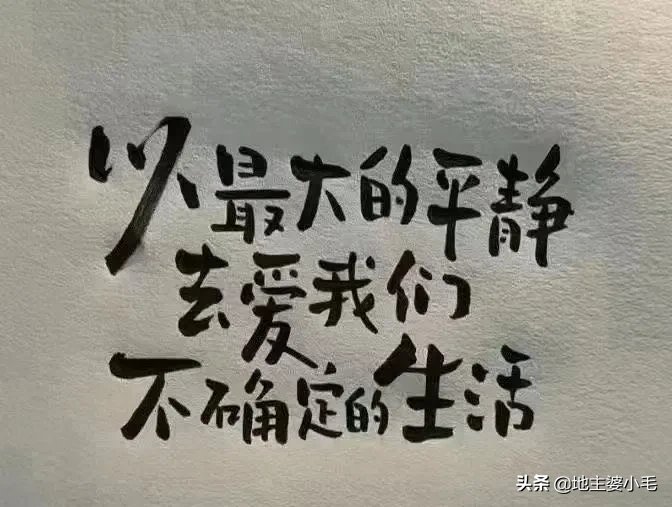 以最大的平静
去爱我们
不确定的生活
头条 @地主婆小毛